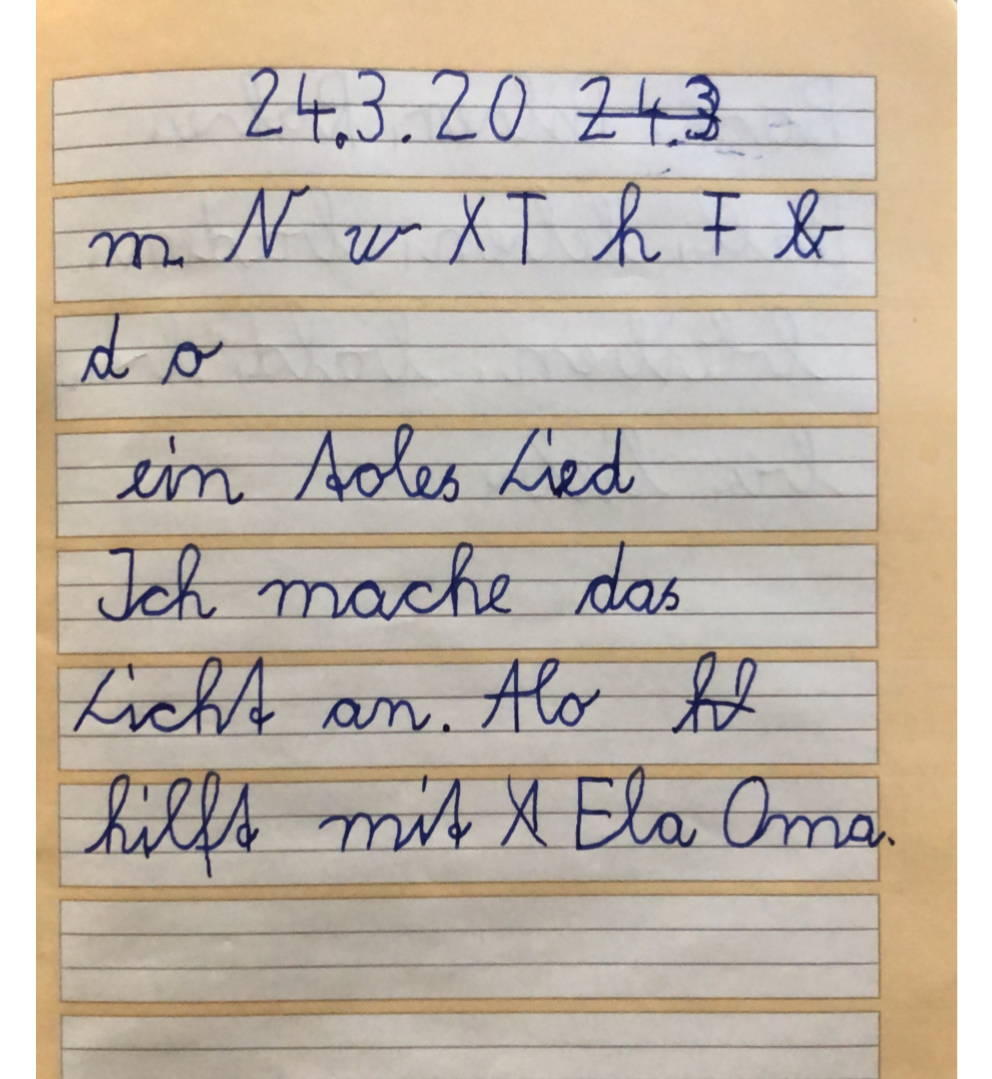 24.3.20 24.3
m N w X T h F b
d o
ein toles Lied
Ich mache das
Licht an. Alo
hilft mit X Ela Oma.